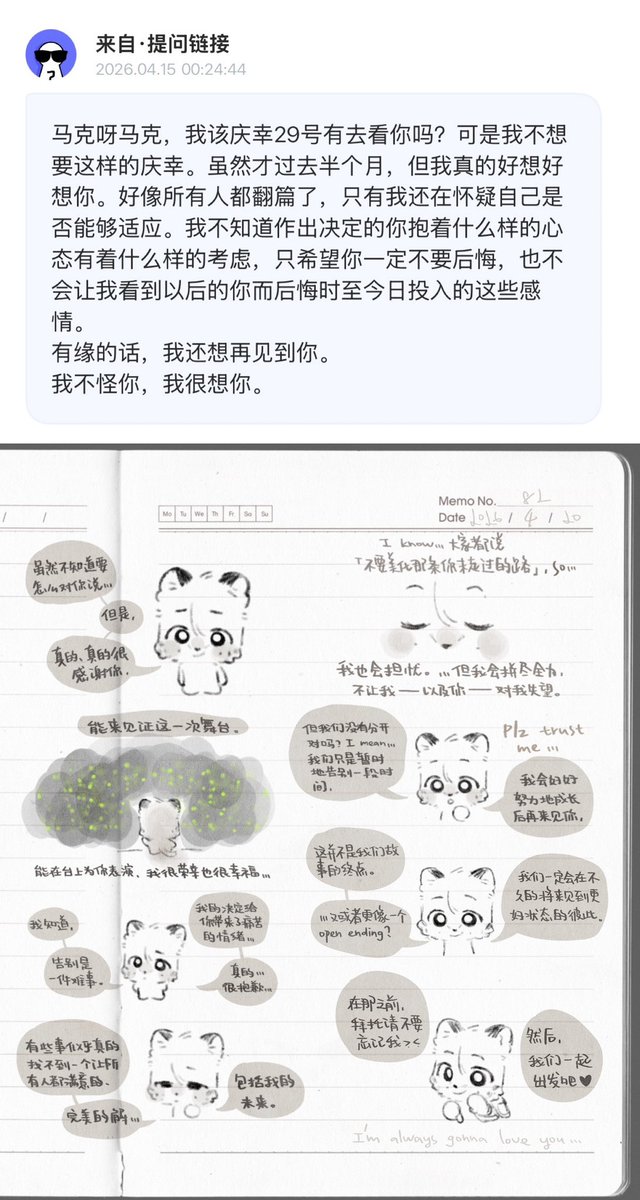 来自·提问链接
2026.04.15 00:24:44
马克呀马克，我该庆幸29号有去看你吗？可是我不想
要这样的庆幸。虽然才过去半个月，但我真的好想好
想你。好像所有人都翻篇了，只有我还在怀疑自己是
否能够适应。我不知道作出决定的你抱着什么样的心
态有着什么样的考虑，只希望你一定不要后悔，也不
会让我看到以后的你而后悔时至今日投入的这些感
情。
有缘的话，我还想再见到你。
我不怪你，我很想你。
Mo Tu We Th Fr Sa Su
Memo No.
Date 2026 / 4 / 20
虽然不知道要
怎么对你说…
但是，
真的、真的很
感谢你.
能来见证这一次舞台.
能在台上为你表演，我很荣幸也很幸福…
我知道，
告别是
一件难事.
我的决定给
你带来了痛苦
的情绪…
真的…
很抱歉…
有些事似乎真的
找不到一个让所
有人都满意的.
完美的解…
包括我的
未来.
I know… 大家都说
「不要美化那条你未走过的路」, so…
我也会担忧。…但我会拼尽全力，
不让我——以及你——对我失望。
但我们没有分开
对吗？I mean…
我们只是暂时
地告别一段时
间.
Plz trust
me …
我会好好
努力地成长
后再来见你.
这并不是我们故
事的终点.
…又或者更像一个
open ending?
我们一定会在不
久的将来见到更
好状态的彼此.
在那之前，
拜托请不要
忘记我 > <
然后，
我们一起
出发吧♥
I'm always gonna love you…